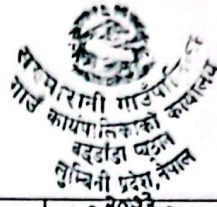 सरुमारानी गाउँपालिका
गाउँ कार्यपालिकाको कार्यालय
बद्डाँडा प्यूठान
लुम्बिनी प्रदेश, नेपाल